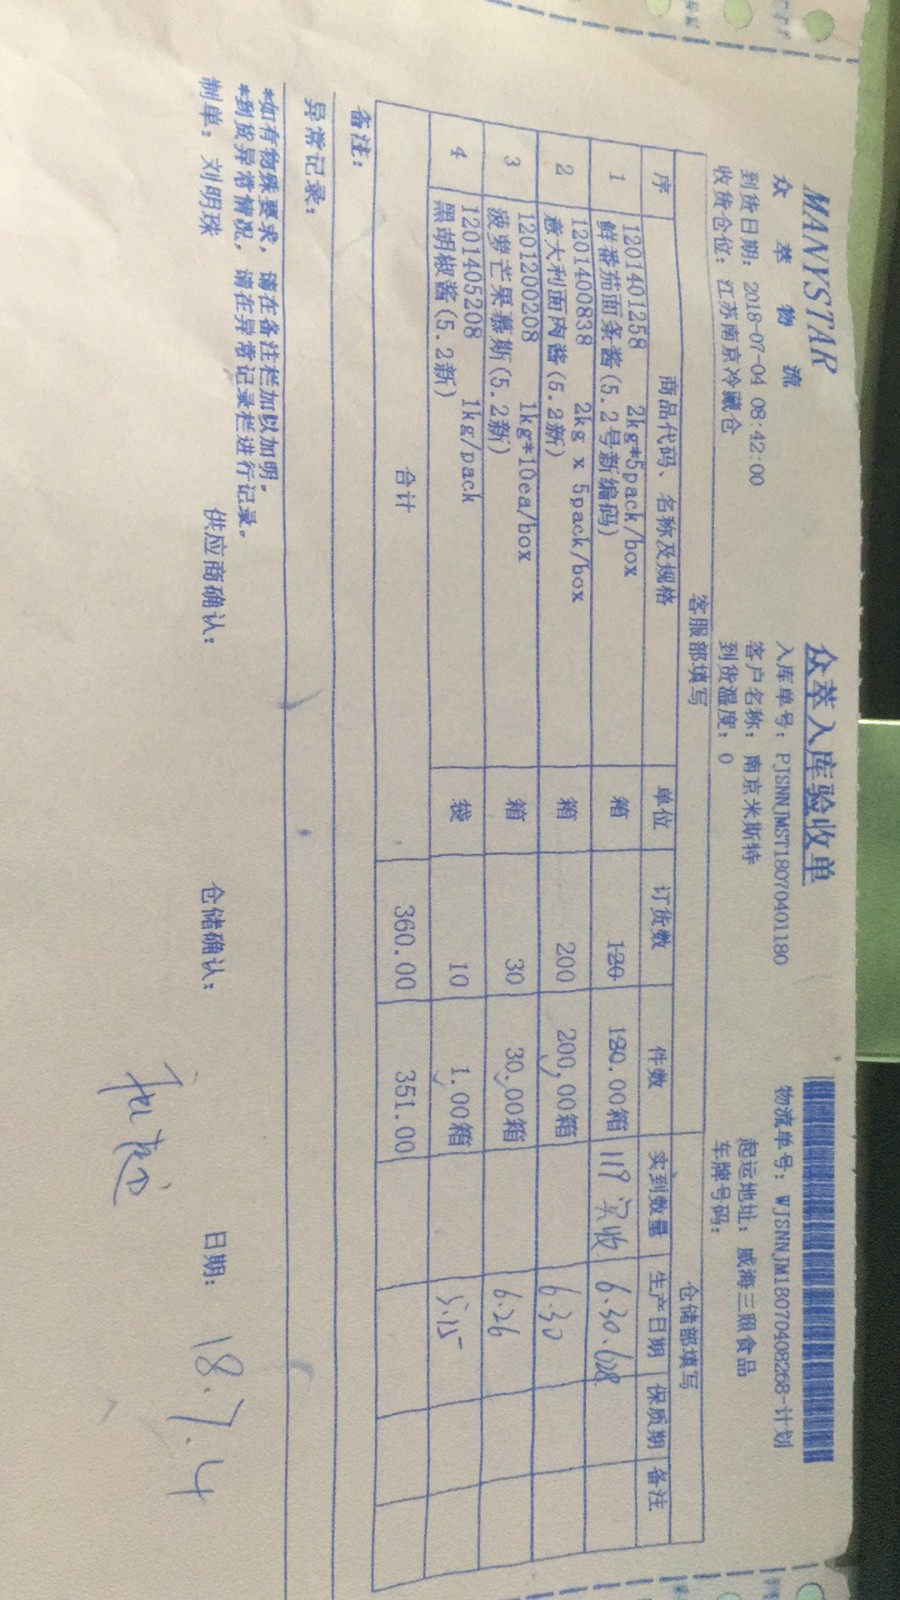 MANYSTAR
众萃物流
众萃入库验收单
到货日期: 2018-07-04 08:42:00
入库单号: PJSNNJMST18070401180
物流单号: WJSNNJM18070408268-计划
收货仓位: 江苏南京冷藏仓
客户名称: 南京米斯特
起运地址: 威海三照食品
到货温度: 0
车牌号码:
客服部填写 仓储部填写
序 商品代码、名称及规格 单位 订货数 件数 实到数量 生产日期 保质期 备注
1 1201401258 2kg*5pack/box
鲜番茄面条酱(5.2号新编码) 箱 120 120.00箱 119 实收 6.30.6.28
2 1201400838 2kg x 5pack/box
意大利面肉酱(5.2新) 箱 200 200.00箱 6.30
3 1201200208 1kg*10ea/box
菠萝芒果慕斯(5.2新) 箱 30 30.00箱 6.26
4 1201405208 1kg/pack
黑胡椒酱(5.2新) 袋 10 1.00箱 5.15
合计 360.00 351.00
备注:
异常记录:
*如有特殊要求, 请在备注栏加以加明。
*到货异常情况, 请在异常记录栏进行记录。
制单: 刘明珠 供应商确认: 仓储确认: 日期: 18.7.4